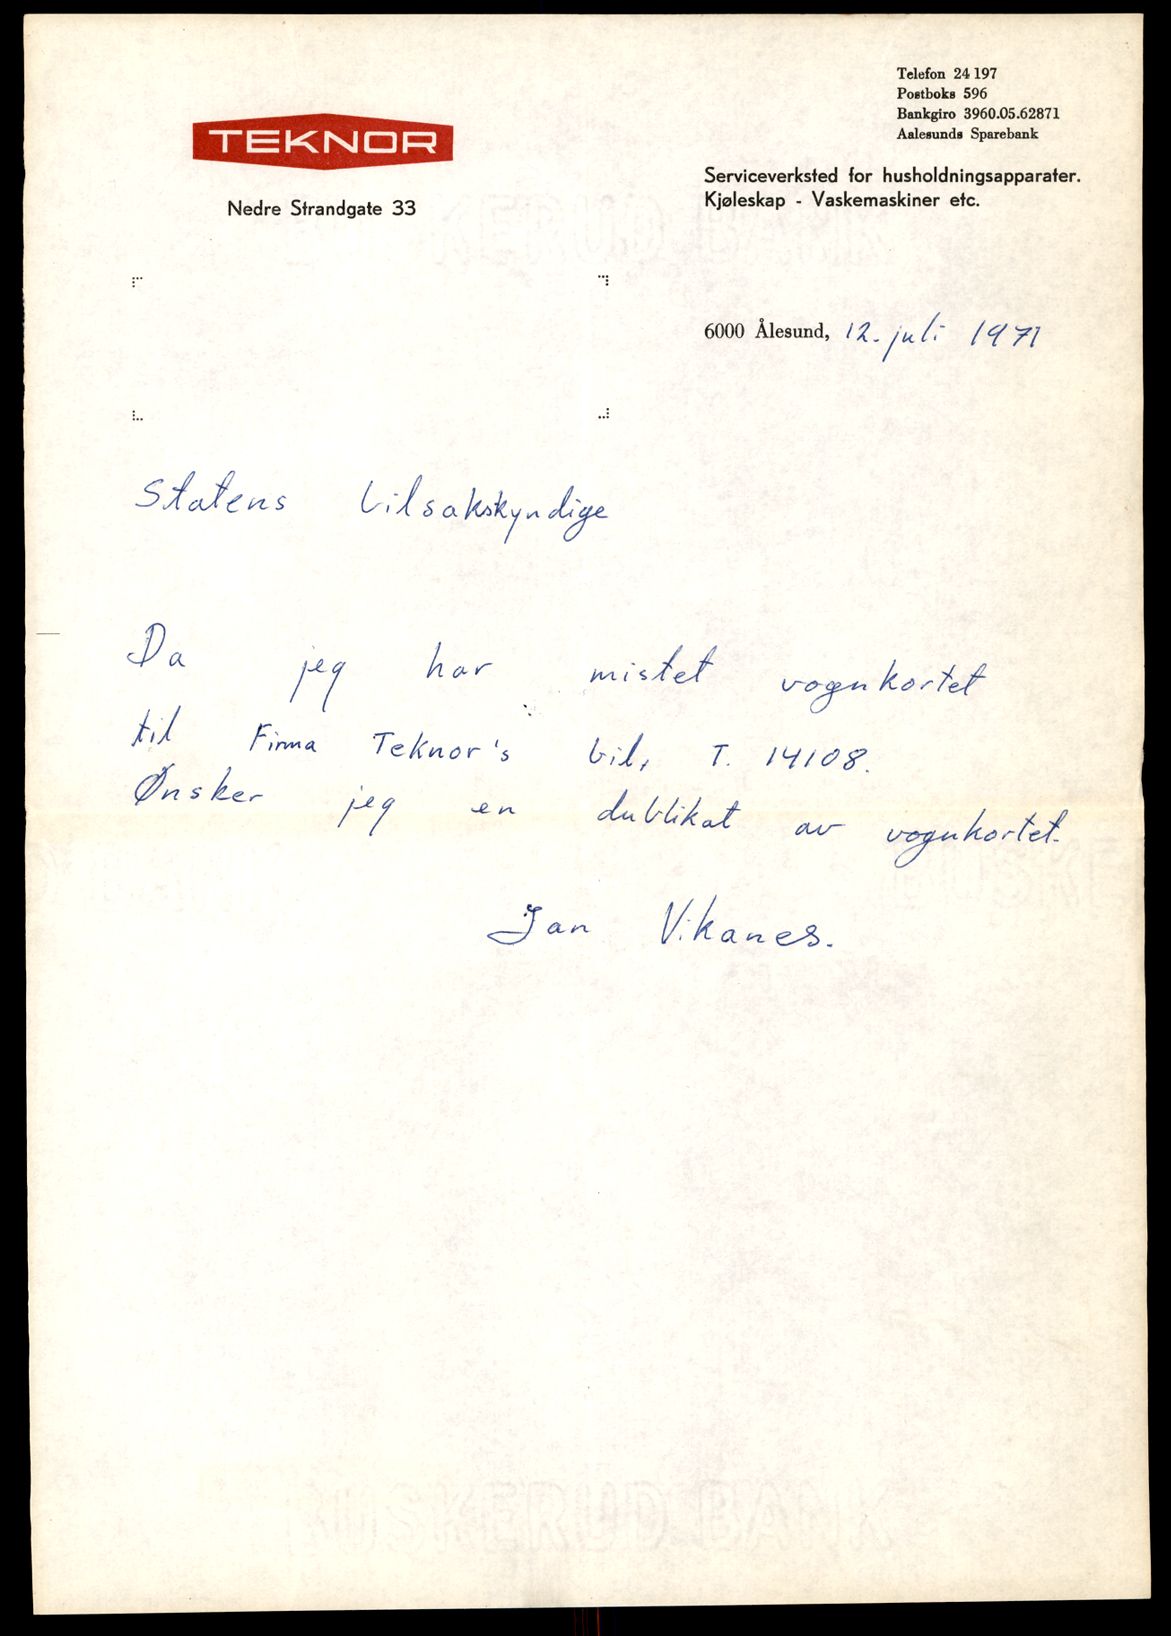 Telefon 24 197
Postboks 596
Bankgiro 3960.05.62871
Aalesunds Sparebank
TEKNOR
Nedre Strandgate 33
Serviceverksted for husholdningsapparater.
Kjøleskap - Vaskemaskiner etc.
6000 Ålesund, 12. juli 1971
Statens bilsakskyndige
Da jeg har mistet vognkortet
til Firma Teknor's bil, T. 14108.
Ønsker jeg en dublikat av vognkortet.
Jan Vikanes.
BUSKERUD BANK